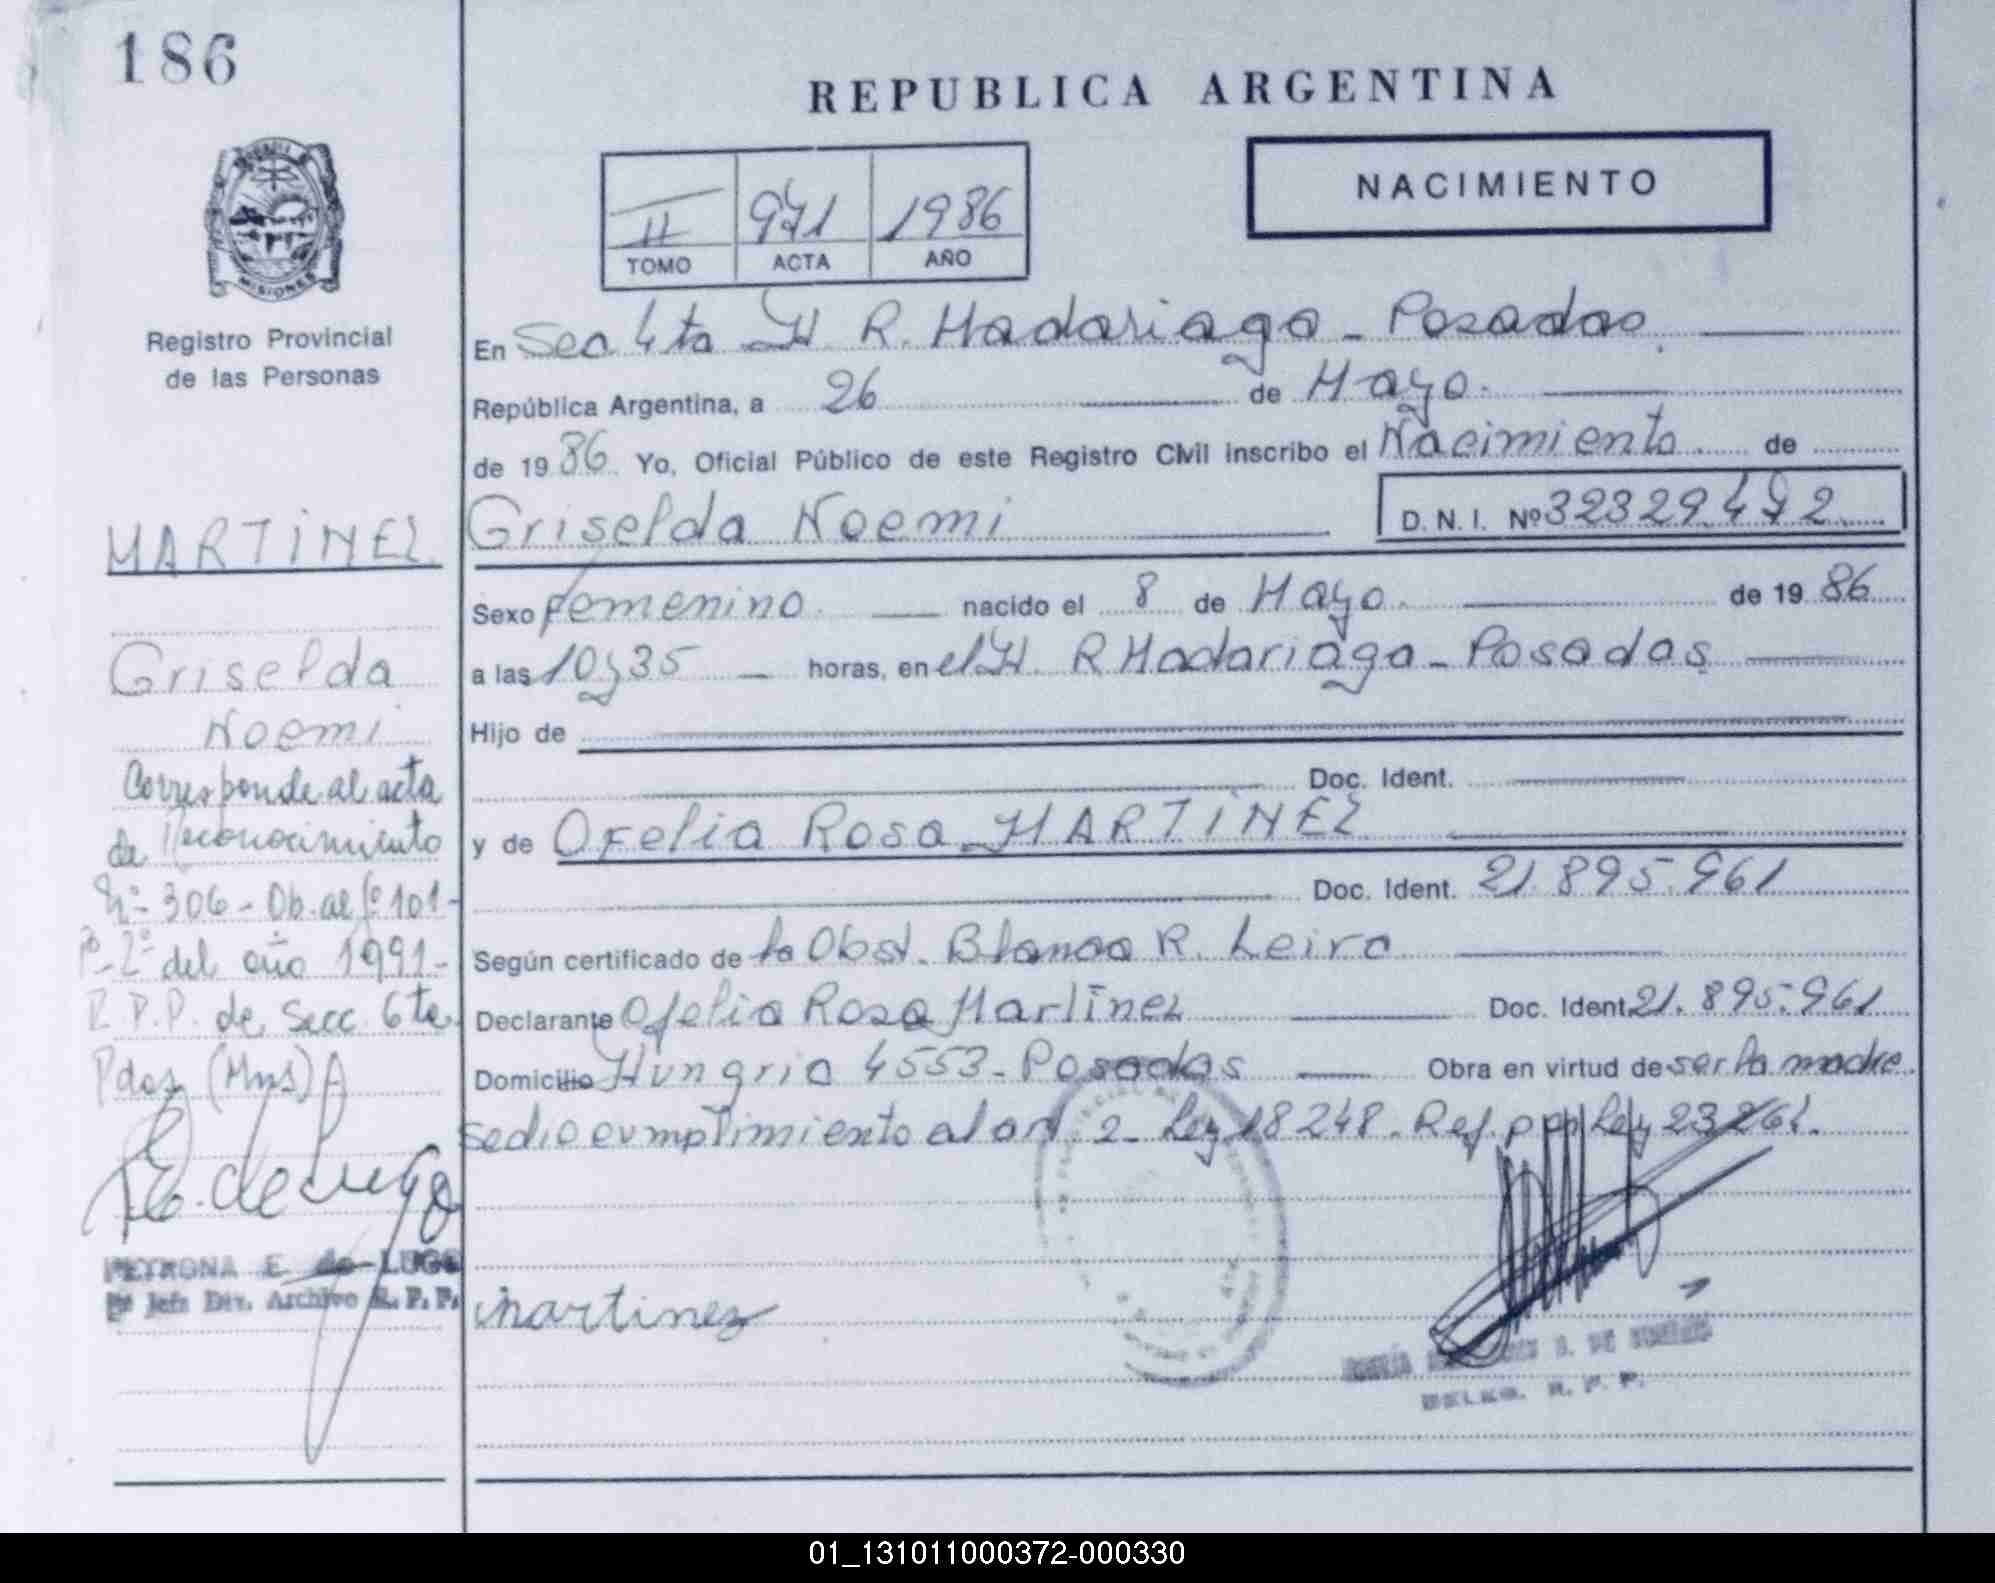 186
REPUBLICA ARGENTINA
NACIMIENTO
II 971 1986
TOMO ACTA AÑO
MISIONES
Registro Provincial
de las Personas
En Sec 4ta H. R. Madariaga - Posadas.
República Argentina, a 26 de Mayo.
de 1986. Yo, Oficial Público de este Registro Civil inscribo el Nacimiento de
MARTINEZ
Griselda Noemi
D. N. I. Nº 32329.472
Sexo femenino. nacido el 8 de Mayo. de 1986
a las 10 y 35 horas, en el H. R Madariaga - Posadas
Hijo de
Doc. Ident.
y de Ofelia Rosa MARTINEZ
Doc. Ident. 21.895.961
Según certificado de la Obst. Blanca R. Leiva
Declarante Ofelia Rosa Martinez Doc. Ident 21.895.961
Domicilio Hungria 4553 - Posadas Obra en virtud de ser la madre.
se dio cumplimiento al art 2 - Ley 18248. Ref. por Ley 23264.
Griselda
Noemi
Corresponde al acta
de Reconocimiento
Nº 306 - Ob. al fº 101 -
Tº 2º del año 1991 -
R.P.P. de Secc 6ta
Pdas (Mns)
E. de Lugo
PETRONA E. de LUGO
Jefe Div. Archivo R. P. P.
martinez
DE
R. P. P.
01_131011000372-000330